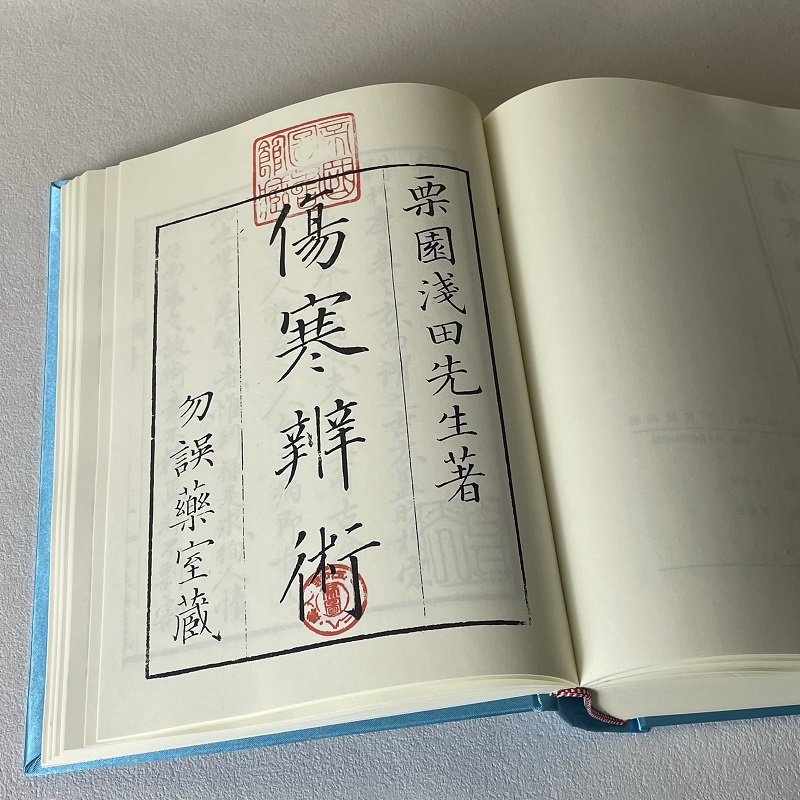 栗園淺田先生著
傷寒辨術
勿誤藥室蔵